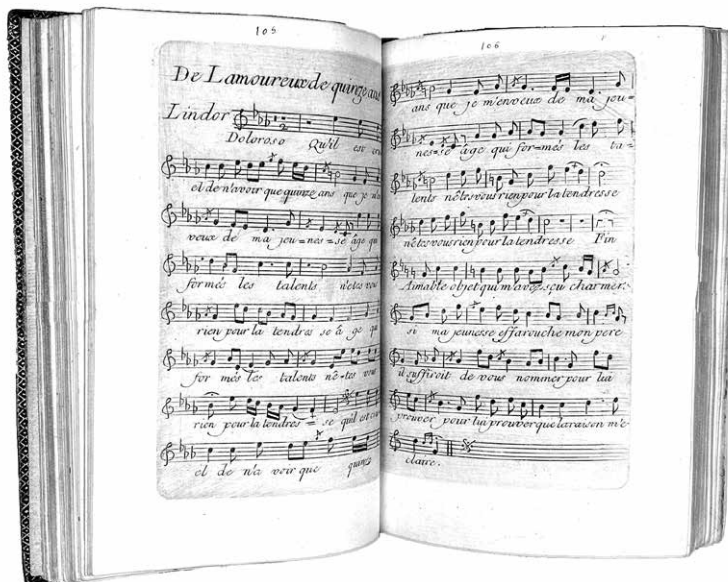 105
De Lamoureux de quinze ans
Lindor
Doloroso Qu'il est cru
el de n'avoir que quinze ans que je m'en
veux de ma jeu=nes=se âge qui
formés les talents n'etes vou
rien pour la tendres se â ge qui
for més les talents nê-tes vous
rien pour la tendres=se qu'il est cru
el de n'a voir que quinze
106
ans que je m'en veux de ma jeu=
nes=se âge qui for=més les ta=
lents nêtes vous rien pour la tendresse
nêtes vous rien pour la tendresse Fin
Aimable objet qui m'avez sçu charmer.
si ma jeunesse effarouche mon pere
il suffiroit de vous nommer pour lui
prouver pour lui prouver que la raison m'e=
claire.